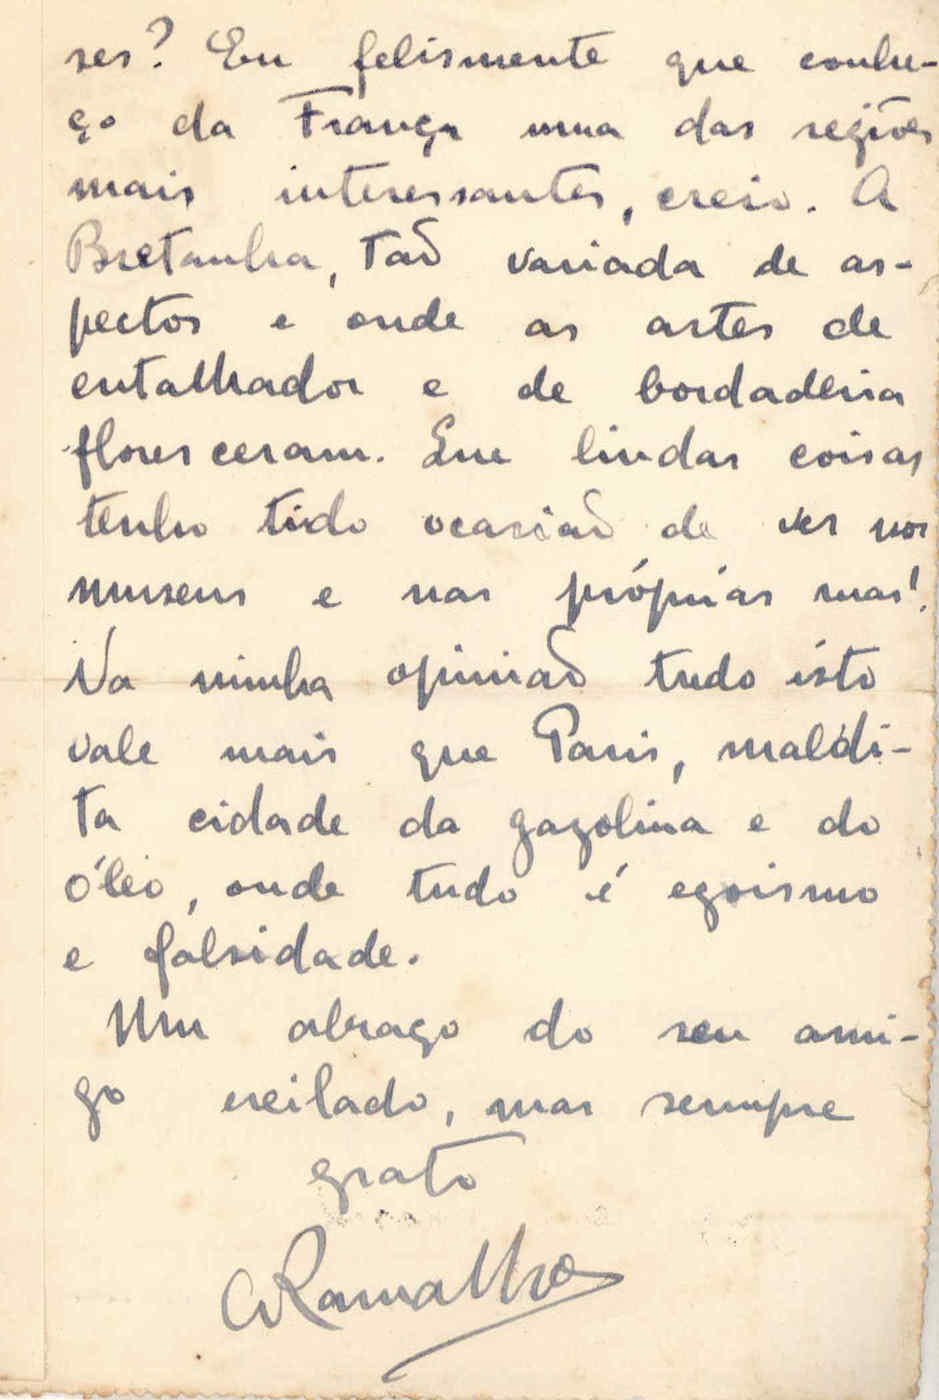 ses? Eu felismente que conhe-
ço da França uma das regiões
mais interessantes, creio. A
Bretanha, tão variada de as-
pectos e onde as artes de
entalhador e de bordadeira
floresceram. Que lindas coisas
tenho tido ocasião de ver nos
museus e nas próprias ruas!
Na minha opinião tudo isto
vale mais que Paris, maldi-
ta cidade da gazolina e do
óleo, onde tudo é egoismo
e falsidade.
Um abraço do seu ami-
go exilado, mas sempre
grato
Ramalho